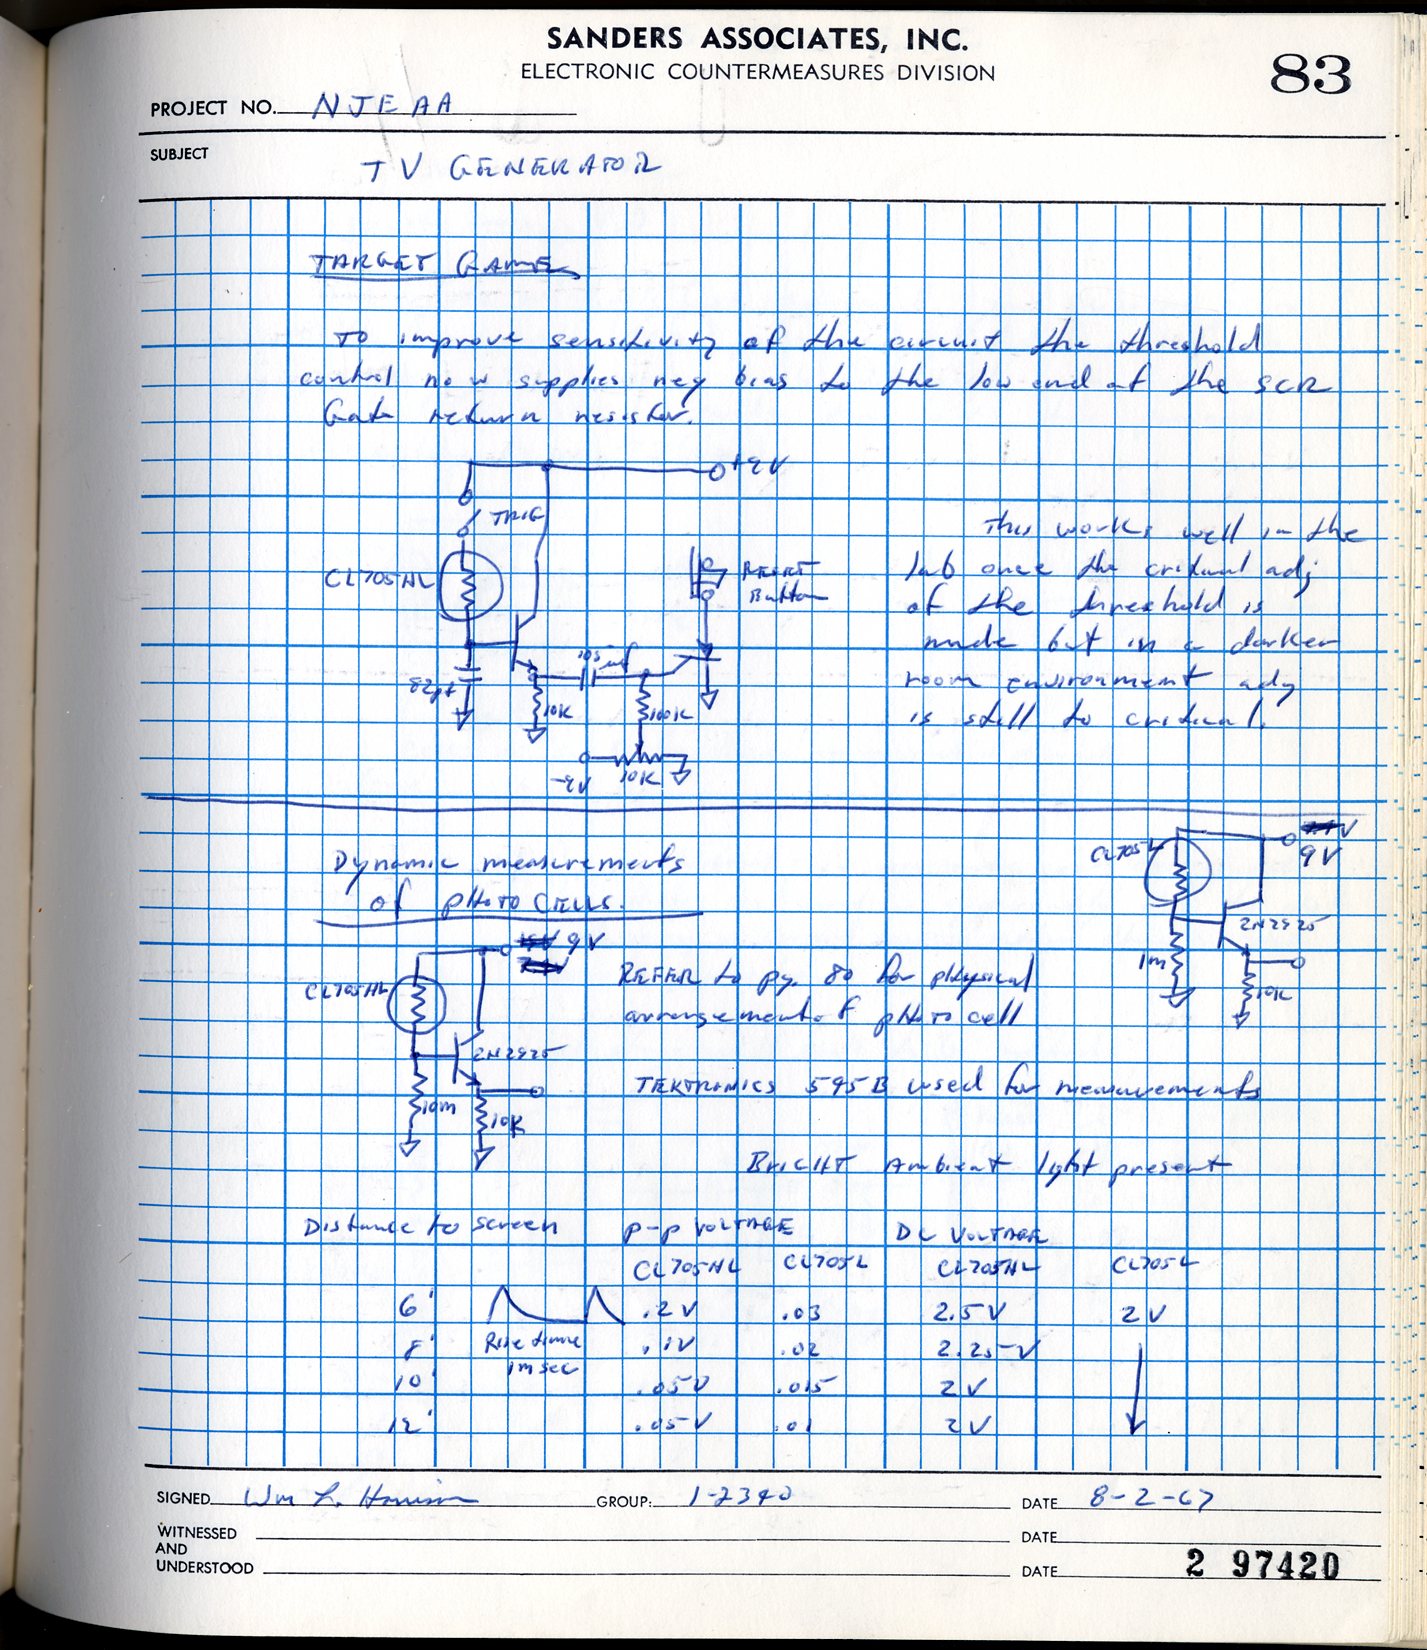 SANDERS ASSOCIATES, INC.
ELECTRONIC COUNTERMEASURES DIVISION
83
PROJECT NO. NJEAA
SUBJECT
TV GENERATOR
TARGET GAME
To improve sensitivity of the circuit the threshold
control now supplies neg bias to the low end of the SCR
Gate return resistor.
+9V
TRIG
CL705HL
RESET
Button
82pf
10K
100K
-9V
10K
This works well in the
lab once the critical adj
of the threshold is
made but in a darker
room environment adj
is still to critical.
Dynamic measurements
of pHoto CELLS.
CL705L
V
9V
2N2925
1m
10K
9V
CL705HL
2N2925
10m
10K
REFER to pg. 80 for pHysical
arrangement of pHoto cell
TEKTRONICS 595B used for measurements
BRIGHT Ambient light present
Distance to screen
P-P VOLTAGE
DC VOLTAGE
CL705HL CL705L CL705HL CL705L
6' .2V .03 2.5V 2V
8' Rise time .1V .02 2.25V
1msec
10' .05V .015 2V
12' .05V .01 2V
SIGNED Wm L. Harrison GROUP: 1-2340 DATE 8-2-67
WITNESSED
AND
UNDERSTOOD
DATE
DATE 2 97420